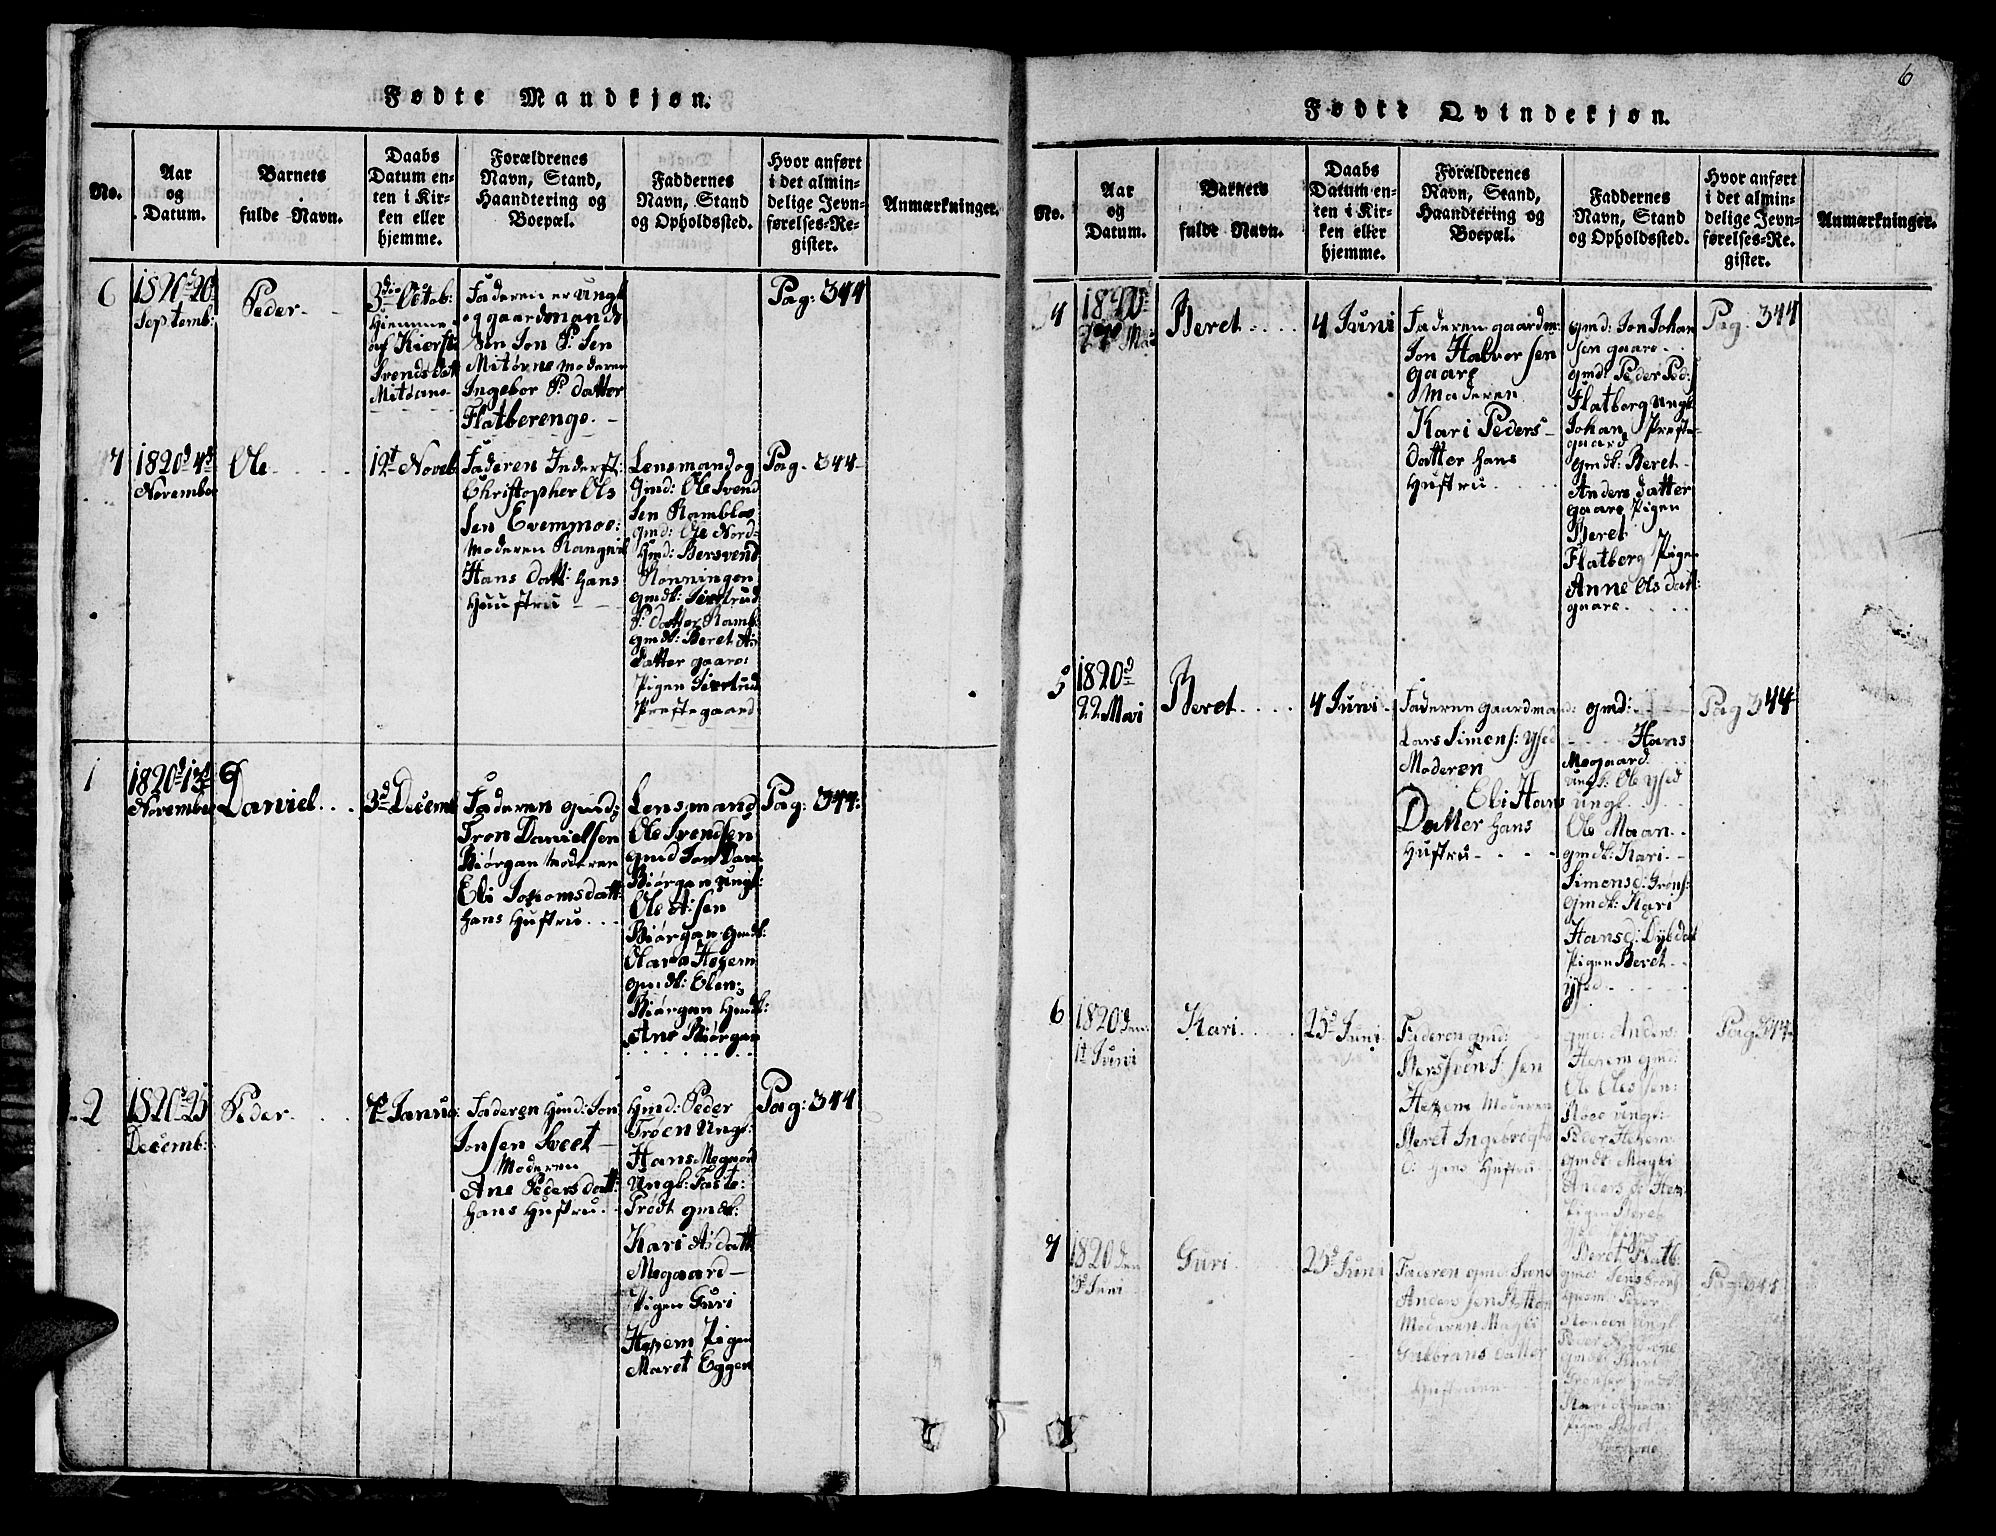 Fødte Mandkjøn.
No.
Aar
og
Datum.
Barnets
fulde Navn.
Daabs
Datum en-
ten i Kir-
ken eller
hjemme.
Forældrenes
Navn, Stand,
Haandtering og
Boepæl.
Faddernes
Navn, Stand
og Opholdssted.
Hvor anført
i det almin-
delige Jevn-
førelses-Re-
gister.
Anmærkninger.
6
Septemb:
Peder
Octob:
Hiemme
af Kierst:
Svends datt
Faderen er Ungk
og gaardmands
Søn Jon P: Sen
Mitøvne moderen
Ingebor P: datter
Flatberenge.
Pag: 344
7
1820 4
November
Ole
12t Noveb
Faderen Inderst:
Christopher Ols
Sen Evemmoe:
moderen Rangnil
Hans datt: hans
Huustru
Lensmand og
gmd: Ole Svend
Sen Rambloe
gmd: Ole Nord-
Hmd: Bersvend
Rønningen
gmdk: Siertrud
P: datter Ramb:
gmdk: Beret As
datter gaare:
Pigen Siertrud
Prestegaard
Pag. 344
1
1820 13
November
Daniel
3d Decemb
Faderen gmd:
Tron Danielsen
Biørgan moderen
Ebi Johomsdatt:
hans Hustru
Lensmand
Ole Svendsen
gmd Jon Dan:
Biørgan Ungk:
Ole A: sen
Biørgan gmdk:
Olava Hexem
gmdk: Elen
Biørgan Hmdk:
Ane Biørgan
Pag: 344:
2
1820 25
Decemb:
Peder
7 Janua:
Faderen Hmd: Jon
Jonsen Sveet
Moderen
Ane Pedersdatt:
hans Hustru
Hmd: Peder
Trøen Ungk:
Hans Megaar
Ungk: Faste:
Trødt gmdk:
Kari A: datt
Megaard
Pigen Guri
Hexem Pigen
Maret Eggen
Pag: 344
6
Fødte Qvindekjøn.
No.
Aar
og
Datum.
Barnets
fulde Navn.
Daabs
Datum en-
ten i Kir-
ken eller
hjemme.
Forældrenes
Navn, Stand,
Haandtering og
Boepæl.
Faddernes
Navn, Stand
og Opholdssted.
Hvor anført
i det almin-
delige Jevn-
førelses-Re-
gister.
Anmærkninger.
4
1820
Beret
4 Juni
Faderen gaardm:
Jon Halvorsen
gaare
Moderen
Kari Peders-
datter hans
Hustru
gmd: Jon Johan
sen gaare
gmd: Peder Ped:
Flatberg Ungk
Johan Preste-
gaard
gmdk: Beret
Anders datter
gaare Pigen
Beret
Flatberg Pigen
Anne Ols datt:
gaare
Pag: 344
5
1820
22 Mai
Beret
4 Juni
Faderen gaardmand:
Lars Simens: Ysed
Moderen
Ebi Hans
Datter hans
Hustru
gmd:
Hans
Megaard
Ungk: Ole Ysed
Ungk
Ole Maan
gmdk: Kari
Simensd: Grøns:
gmdk: Kari
Hansd: Dybdal
Pigen Beret
Ysed
Pag 344
6
1820 den
1t Juni
Kari
25d Juni
Faderen gmd:
Bersven J: sen
Hexem Moderen
Beret Ingebregts
d: hans Hustru
gmd: Anders
Hexem gmd:
Ole Olessen:
Peder Hexem
gmdk: Magli
Anders d: Hem
Pigen Beret
Pag 344
7
1820 den
Juni
Guri
25d Juni
Faderen gmd: Svend
Andersen
Moderen Magli
Gulbrans datter
Hustruen
Beret Flatb:
Peder
gmdk: Kari
Pag: 344